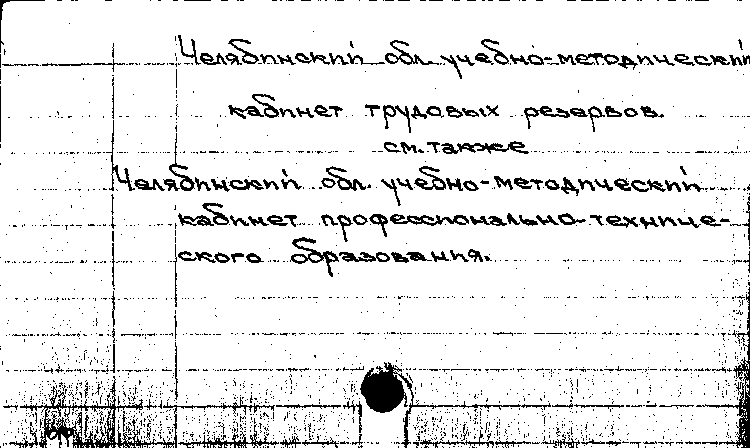 Челябинский обл. учебно-методический
кабинет трудовых резервов.
см. также
Челябинский обл. учебно-методический
кабинет профессионально-техниче-
ского образования.